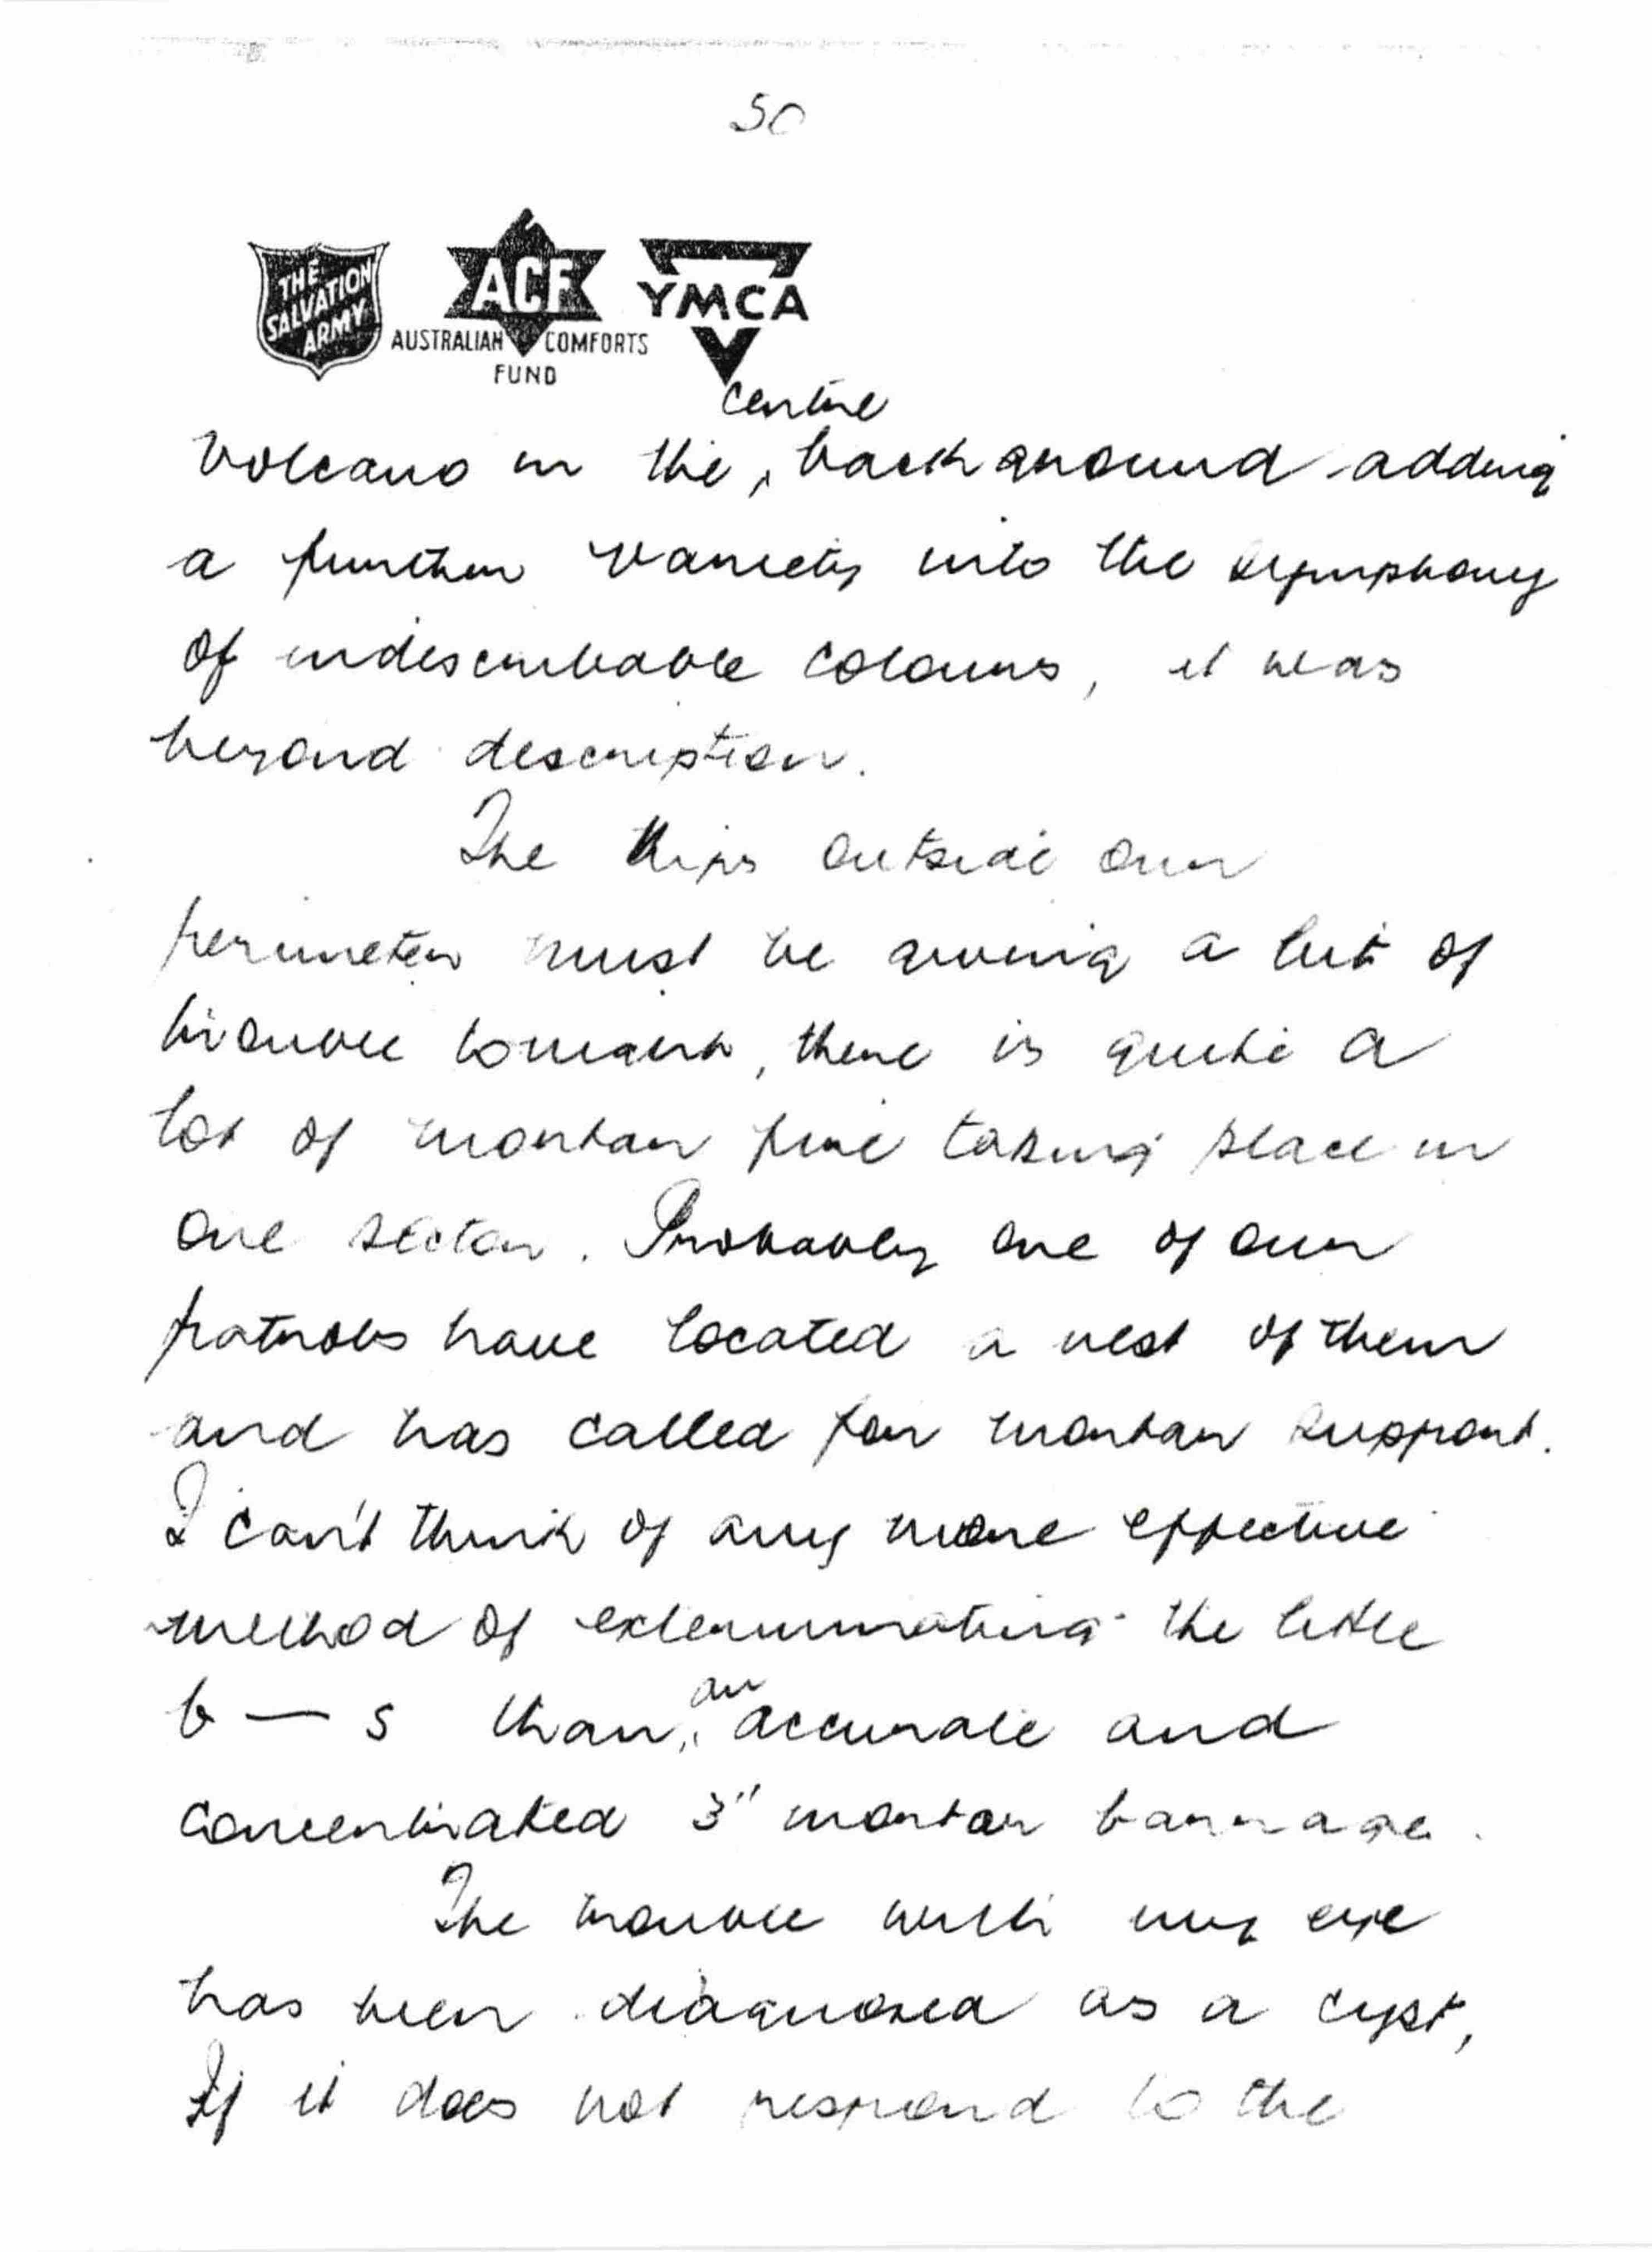 50
THE
SALVATION
ARMY
ACF
AUSTRALIAN COMFORTS
FUND
YMCA
centre
volcano in the, background adding
a further variety into the symphony
of indescribable colours, it was
beyond description.
The Nips outside our
perimeter must be giving a bit of
trouble tonight, there is quite a
lot of mortar fire taking place in
one sector. Probably one of our
patrols have located a nest of them
and has called for mortar support.
I can't think of any more effective
method of exterminating the little
b — s than an accurate and
concentrated 3" mortar barrage.
The trouble with my eye
has been diagnosed as a cyst,
If it does not respond to the